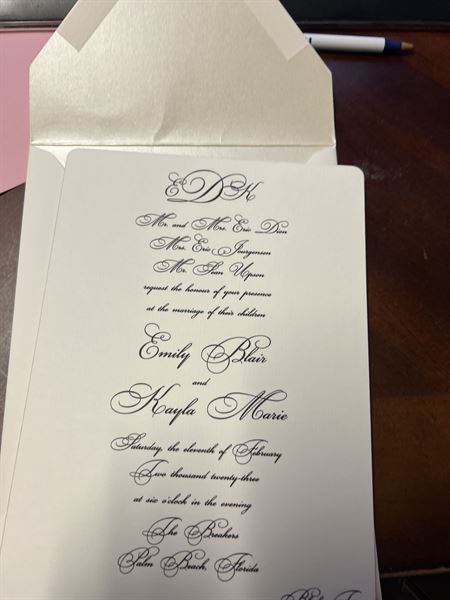 EDK
Mr. and Mrs. Eric Dion
Mrs. Eric Jourgensen
Mr. Sean Upson
request the honour of your presence
at the marriage of their children
Emily Blair
and
Kayla Marie
Saturday, the eleventh of February
Two thousand twenty-three
at six o'clock in the evening
The Breakers
Palm Beach, Florida